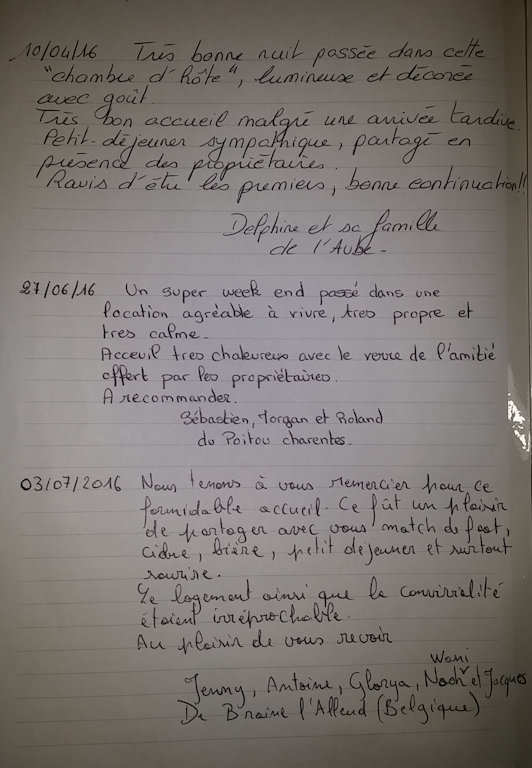 10/04/16 Très bonne nuit passée dans cette
"chambre d'hôte", lumineuse et décorée
avec goût.
Très bon accueil malgré une arrivée tardive.
Petit-déjeuner sympathique, partagé en
présence des propriétaires.
Ravis d'être les premiers, bonne continuation!!
Delphine et sa famille
de l'Aube-
27/06/16 Un super week end passé dans une
location agréable à vivre, tres propre et
tres calme.
Acceuil tres chaleureux avec le verre de l'amitié
offert par les propriétaires.
A recommander.
Sébastien, Morgan et Roland
du Poitou charentes.
03/07/2016 Nous tenons à vous remercier pour ce
formidable accueil. Ce fût un plaisir
de partager avec vous match de foot,
cidre, bière, petit déjeuner et surtout
sourire.
Le logement ainsi que la convivialité
étaient irréprochable.
Au plaisir de vous revoir
Wani
Jenny, Antoine, Glorya, Noah et Jacques
De Braine l'Alleud (Belgique)